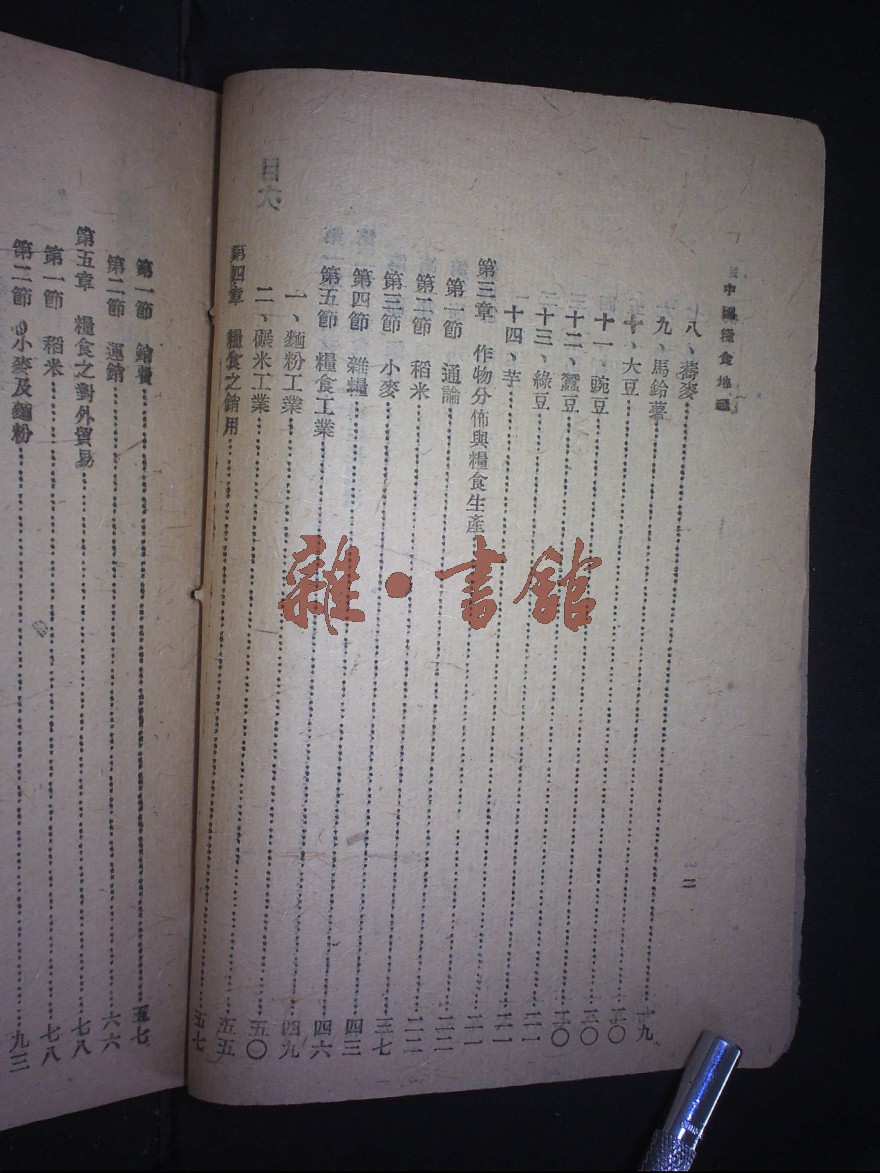 中國糧食地理
二
八、蕎麥……一九
九、馬鈴薯……二〇
十、大豆……二〇
十一、豌豆……二〇
十二、蠶豆……二一
十三、綠豆……二一
十四、芋……二一
第三章 作物分佈與糧食生產……二二
第一節 通論……二二
第二節 稻米……三七
第三節 小麥……四三
第四節 雜糧……四六
第五節 糧食工業……四九
一、麵粉工業……五〇
二、碾米工業……五五
第四章 糧食之銷用……五七
第一節 銷費……五七
第二節 運銷……六六
第五章 糧食之對外貿易……七八
第一節 稻米……七八
第二節 小麥及麵粉……九三
雜•書館